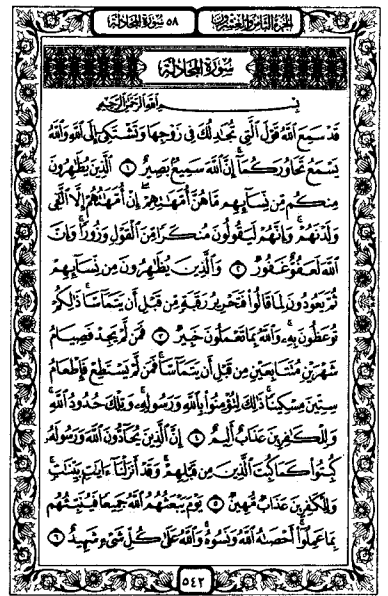 الجزء الثامن والعشرون
٥٨ سورة المجادلة
سُورَةُ المُجَادلَة
بِسْمِ اللَّهِ الرَّحْمَٰنِ الرَّحِيمِ
قَدْ سَمِعَ ٱللَّهُ قَوْلَ ٱلَّتِى تُجَٰدِلُكَ فِى زَوْجِهَا وَتَشْتَكِىٓ إِلَى ٱللَّهِ وَٱللَّهُ
يَسْمَعُ تَحَاوُرَكُمَآ إِنَّ ٱللَّهَ سَمِيعٌۢ بَصِيرٌ ١ ٱلَّذِينَ يُظَٰهِرُونَ
مِنكُم مِّن نِّسَآئِهِم مَّا هُنَّ أُمَّهَٰتِهِمْ إِنْ أُمَّهَٰتُهُمْ إِلَّا ٱلَّٰٓـِٔى
وَلَدْنَهُمْ وَإِنَّهُمْ لَيَقُولُونَ مُنكَرًا مِّنَ ٱلْقَوْلِ وَزُورًا وَإِنَّ
ٱللَّهَ لَعَفُوٌّ غَفُورٌ ٢ وَٱلَّذِينَ يُظَٰهِرُونَ مِن نِّسَآئِهِمْ
ثُمَّ يَعُودُونَ لِمَا قَالُوا۟ فَتَحْرِيرُ رَقَبَةٍ مِّن قَبْلِ أَن يَتَمَآسَّا ذَٰلِكُمْ
تُوعَظُونَ بِهِۦ وَٱللَّهُ بِمَا تَعْمَلُونَ خَبِيرٌ ٣ فَمَن لَّمْ يَجِدْ فَصِيَامُ
شَهْرَيْنِ مُتَتَابِعَيْنِ مِن قَبْلِ أَن يَتَمَآسَّا فَمَن لَّمْ يَسْتَطِعْ فَإِطْعَامُ
سِتِّينَ مِسْكِينًا ذَٰلِكَ لِتُؤْمِنُوا۟ بِٱللَّهِ وَرَسُولِهِۦ وَتِلْكَ حُدُودُ ٱللَّهِ
وَلِلْكَٰفِرِينَ عَذَابٌ أَلِيمٌ ٤ إِنَّ ٱلَّذِينَ يُحَآدُّونَ ٱللَّهَ وَرَسُولَهُۥ
كُبِتُوا۟ كَمَا كُبِتَ ٱلَّذِينَ مِن قَبْلِهِمْ وَقَدْ أَنزَلْنَآ ءَايَٰتٍۭ بَيِّنَٰتٍ
وَلِلْكَٰفِرِينَ عَذَابٌ مُّهِينٌ ٥ يَوْمَ يَبْعَثُهُمُ ٱللَّهُ جَمِيعًا فَيُنَبِّئُهُم
بِمَا عَمِلُوٓا۟ أَحْصَىٰهُ ٱللَّهُ وَنَسُوهُ وَٱللَّهُ عَلَىٰ كُلِّ شَىْءٍ شَهِيدٌ ٦
٥٤٢